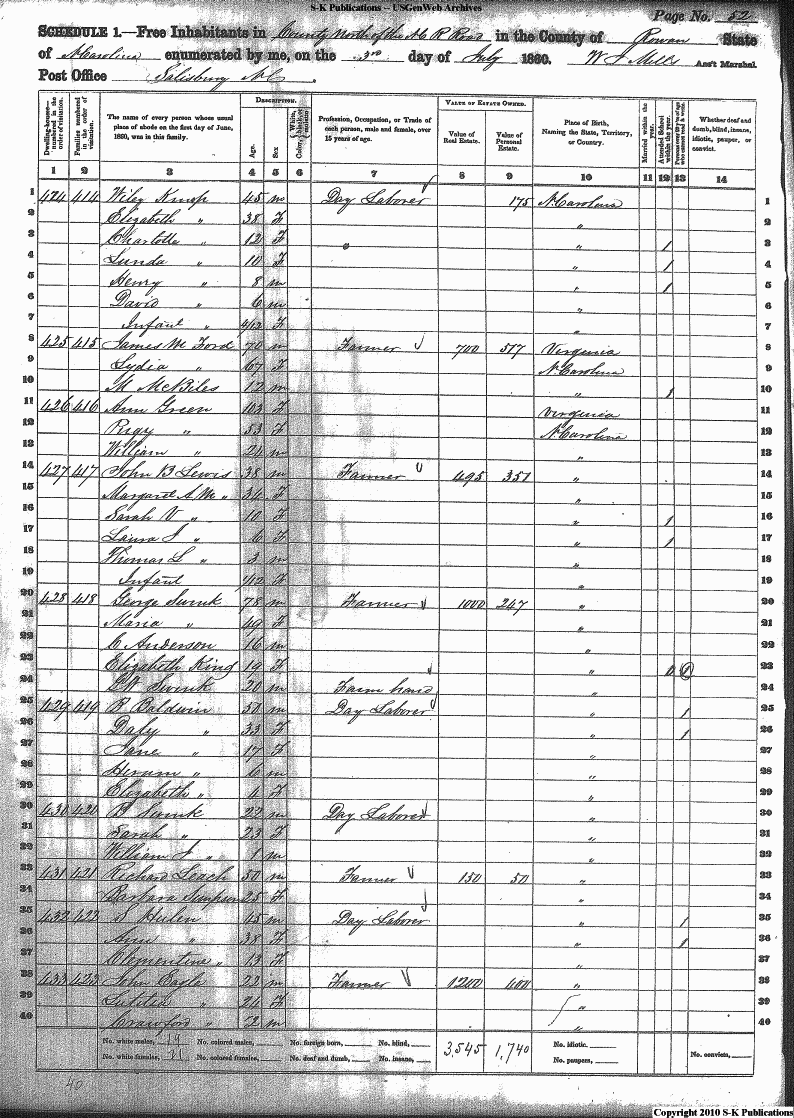 S-K Publications – USGenWeb Archives
Page No. 52
SCHEDULE 1.—Free Inhabitants in County North of the N C R Road in the County of Rowan State
of N Carolina enumerated by me, on the 3rd day of July 1860. Ass't Marshal
Post Office Salisbury N C.
DESCRIPTION. VALUE OF ESTATE OWNED.
Dwelling-house— numbered in the order of visitation.
Families numbered in the order of visitation.
The name of every person whose usual place of abode on the first day of June, 1860, was in this family.
Age.
Sex
Profession, Occupation, or Trade of each person, male and female, over 15 years of age.
Value of Real Estate.
Value of Personal Estate.
Place of Birth, Naming the State, Territory, or Country.
Married within the year.
Attended School within the year.
Whether deaf and dumb, blind, insane, idiotic, pauper, or convict.
1 2 3 4 5 6 7 8 9 10 11 12 13 14
1 424 414 Wiley Knup 45 m Day Laborer 175 N Carolina 1
2 Elizabeth " 38 F " 2
3 Charlotte " 12 F " 1 3
4 Lunda " 10 F " 1 4
5 Henry " 8 m " 1 5
6 David " 6 m " 6
7 Infant " 4/12 F " 7
8 425 415 James M Ford 70 m Farmer 700 517 Virginia 8
9 Lydia " 67 F N Carolina 9
10 M McBiles 12 m " 1 10
11 426 416 Ann Green 103 F Virginia 11
12 " 53 F N Carolina 12
13 William " 21 m " 13
14 427 417 John B Lewis 38 m Farmer 495 351 " 14
15 Margaret A M " 34 F " 15
16 Sarah V " 10 F " 1 16
17 Laura J " 6 F " 1 17
18 Thomas L " 3 m " 18
19 Infant F " 19
20 428 418 George Swink 78 m Farmer 1000 247 " 20
21 Maria " 49 F " 21
22 C Anderson 16 m " 22
23 Elizabeth King 19 F " 1 1 23
24 Swink 20 m Farm hand " 24
25 429 419 R Baldwin 50 m Day Laborer " 1 25
26 Dafy " 33 F " 1 26
27 Jane " 17 F " 27
28 Hiram " 6 m " 28
29 Elizabeth " 1 F " 29
30 430 420 Swink 22 m Day Laborer " 30
31 Sarah " 23 F " 31
32 William J " 1 m " 32
33 431 421 Richard Leach 50 m Farmer 150 50 " 33
34 Barbara Simpson 25 F " 34
35 432 422 S Hulen 45 m Day Laborer " 1 35
36 Ann " 38 F " 1 36
37 Clementine " 13 F " 37
38 433 423 John Eagle 23 m Farmer 1200 400 " 38
39 Lutitia " 21 F " 39
40 Crawford " 2 m " 40
No. white males, 19 No. colored males, No. foreign born, No. blind, 3,545 1,740 No. idiotic.
No. white females, 21 No. colored females, No. deaf and dumb, No. insane, No. paupers, No. convicts,
40
Copyright 2010 S-K Publications